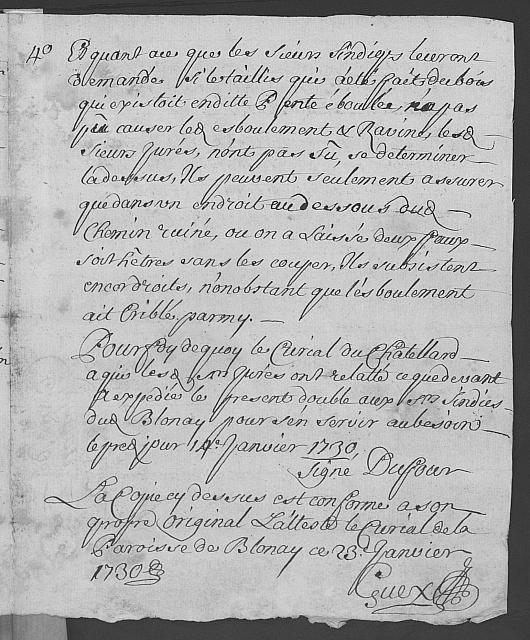 4º Et quant a ce que les sieurs sindicqs leur ont
demandé si le taillis qui a eté fait du bois
qui existoit en ditte Pente éboulée, n'a pas
pû causer led esboulement & Ravine, lesd
sieurs Jurés, n'ont pas sû, se determiner
la dessus, Ils peuvent seulement assurer
que dans un endroit au dessous dud
Chemin ruiné, ou on a laissé deux faux
soit hêtres sans les couper, Ils subsistent
encor droits, nonobstant que l'ésboulement
ait Criblé parmy.
Pour foy de quoy le Curial du Châtellard
a qui lesd srs Jurés ont relatté ce que devant
a expedié le present double aux srs sindics
dud Blonay pour s'én servir au besoin
le pred jour 14e Janvier 1730,
signé Dufour
La Copie cy dessus est conforme a son
propre original L'atteste le Curial de la
Paroisse de Blonay ce 23e Janvier
1730
Guex